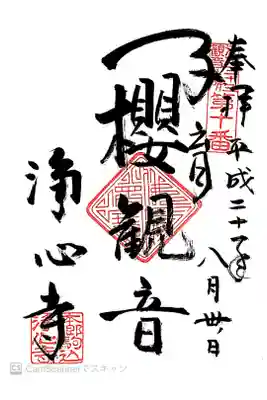 奉拝 平成二十年
八月卅日
第十番
子育
櫻観音
浄心寺
CS CamScannerでスキャン